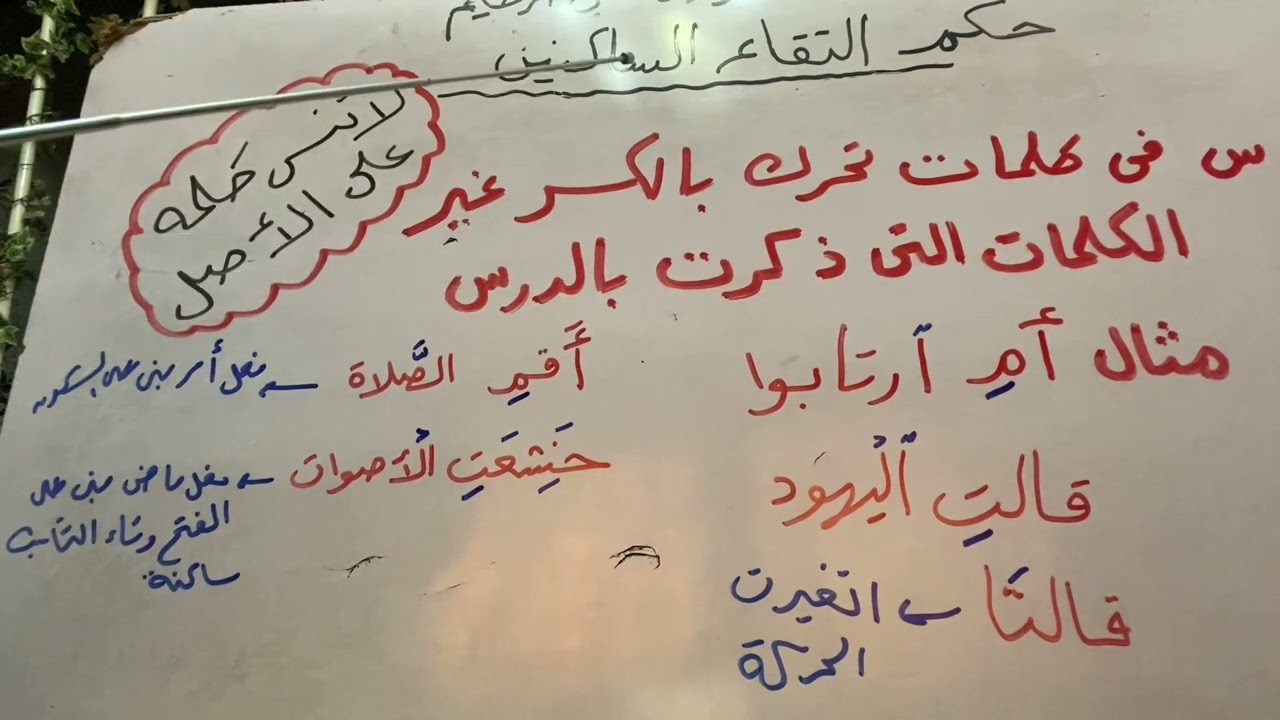 الرحيم
حكم التقاء الساكنين
لا تنس كلمه
على الأصل
س فى كلمات تحرك بالكسر غير
الكلمات التى ذكرت بالدرس
مثال أمِ ٱرتابوا
أَقمِ الصَّلاة ← فعل أمر مبنى على السكون
قالتِ ٱلْيهود
خَشِعَتِ الْأصوات ← فعل ماضى مبنى على
الفتح وتاء التانيث
ساكنة
قالتَا ← اتغيرت
الحركة